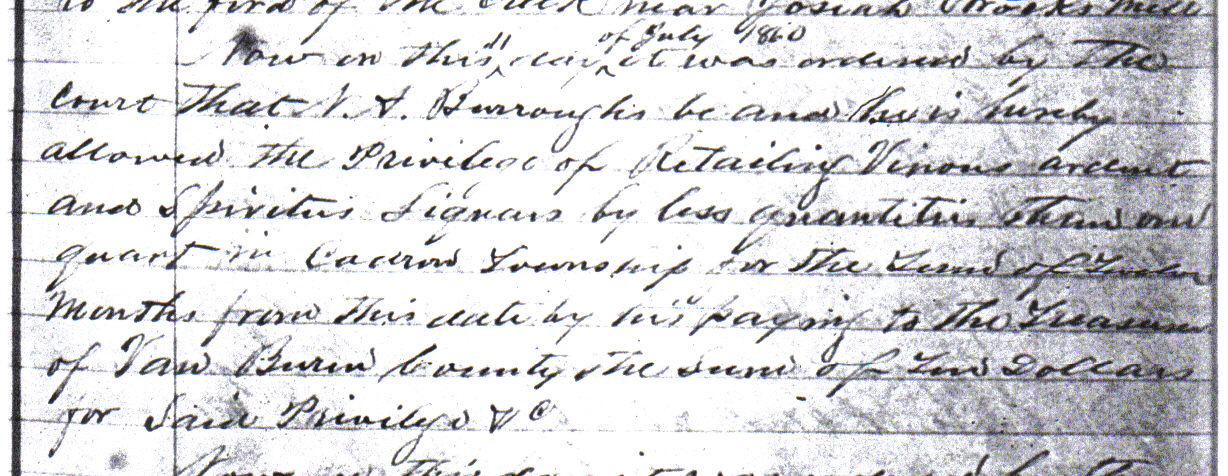 to the ford of the creek near Josiah Brooks Mill
Now on this 11 day of July 1860 it was ordered by the
Court that V. A. Burroughs be and he is hereby
allowed the Privilege of Retailing Vinous ardent
and Spiritus Liquars by less quantitis than one
quart in Cadron Township for the Term of Twelve
Months from this date by his paying to the Treasurer
of Van Buren County the sum of Ten Dollars
for Said Privilige &c
Now on this day it was ordered by the